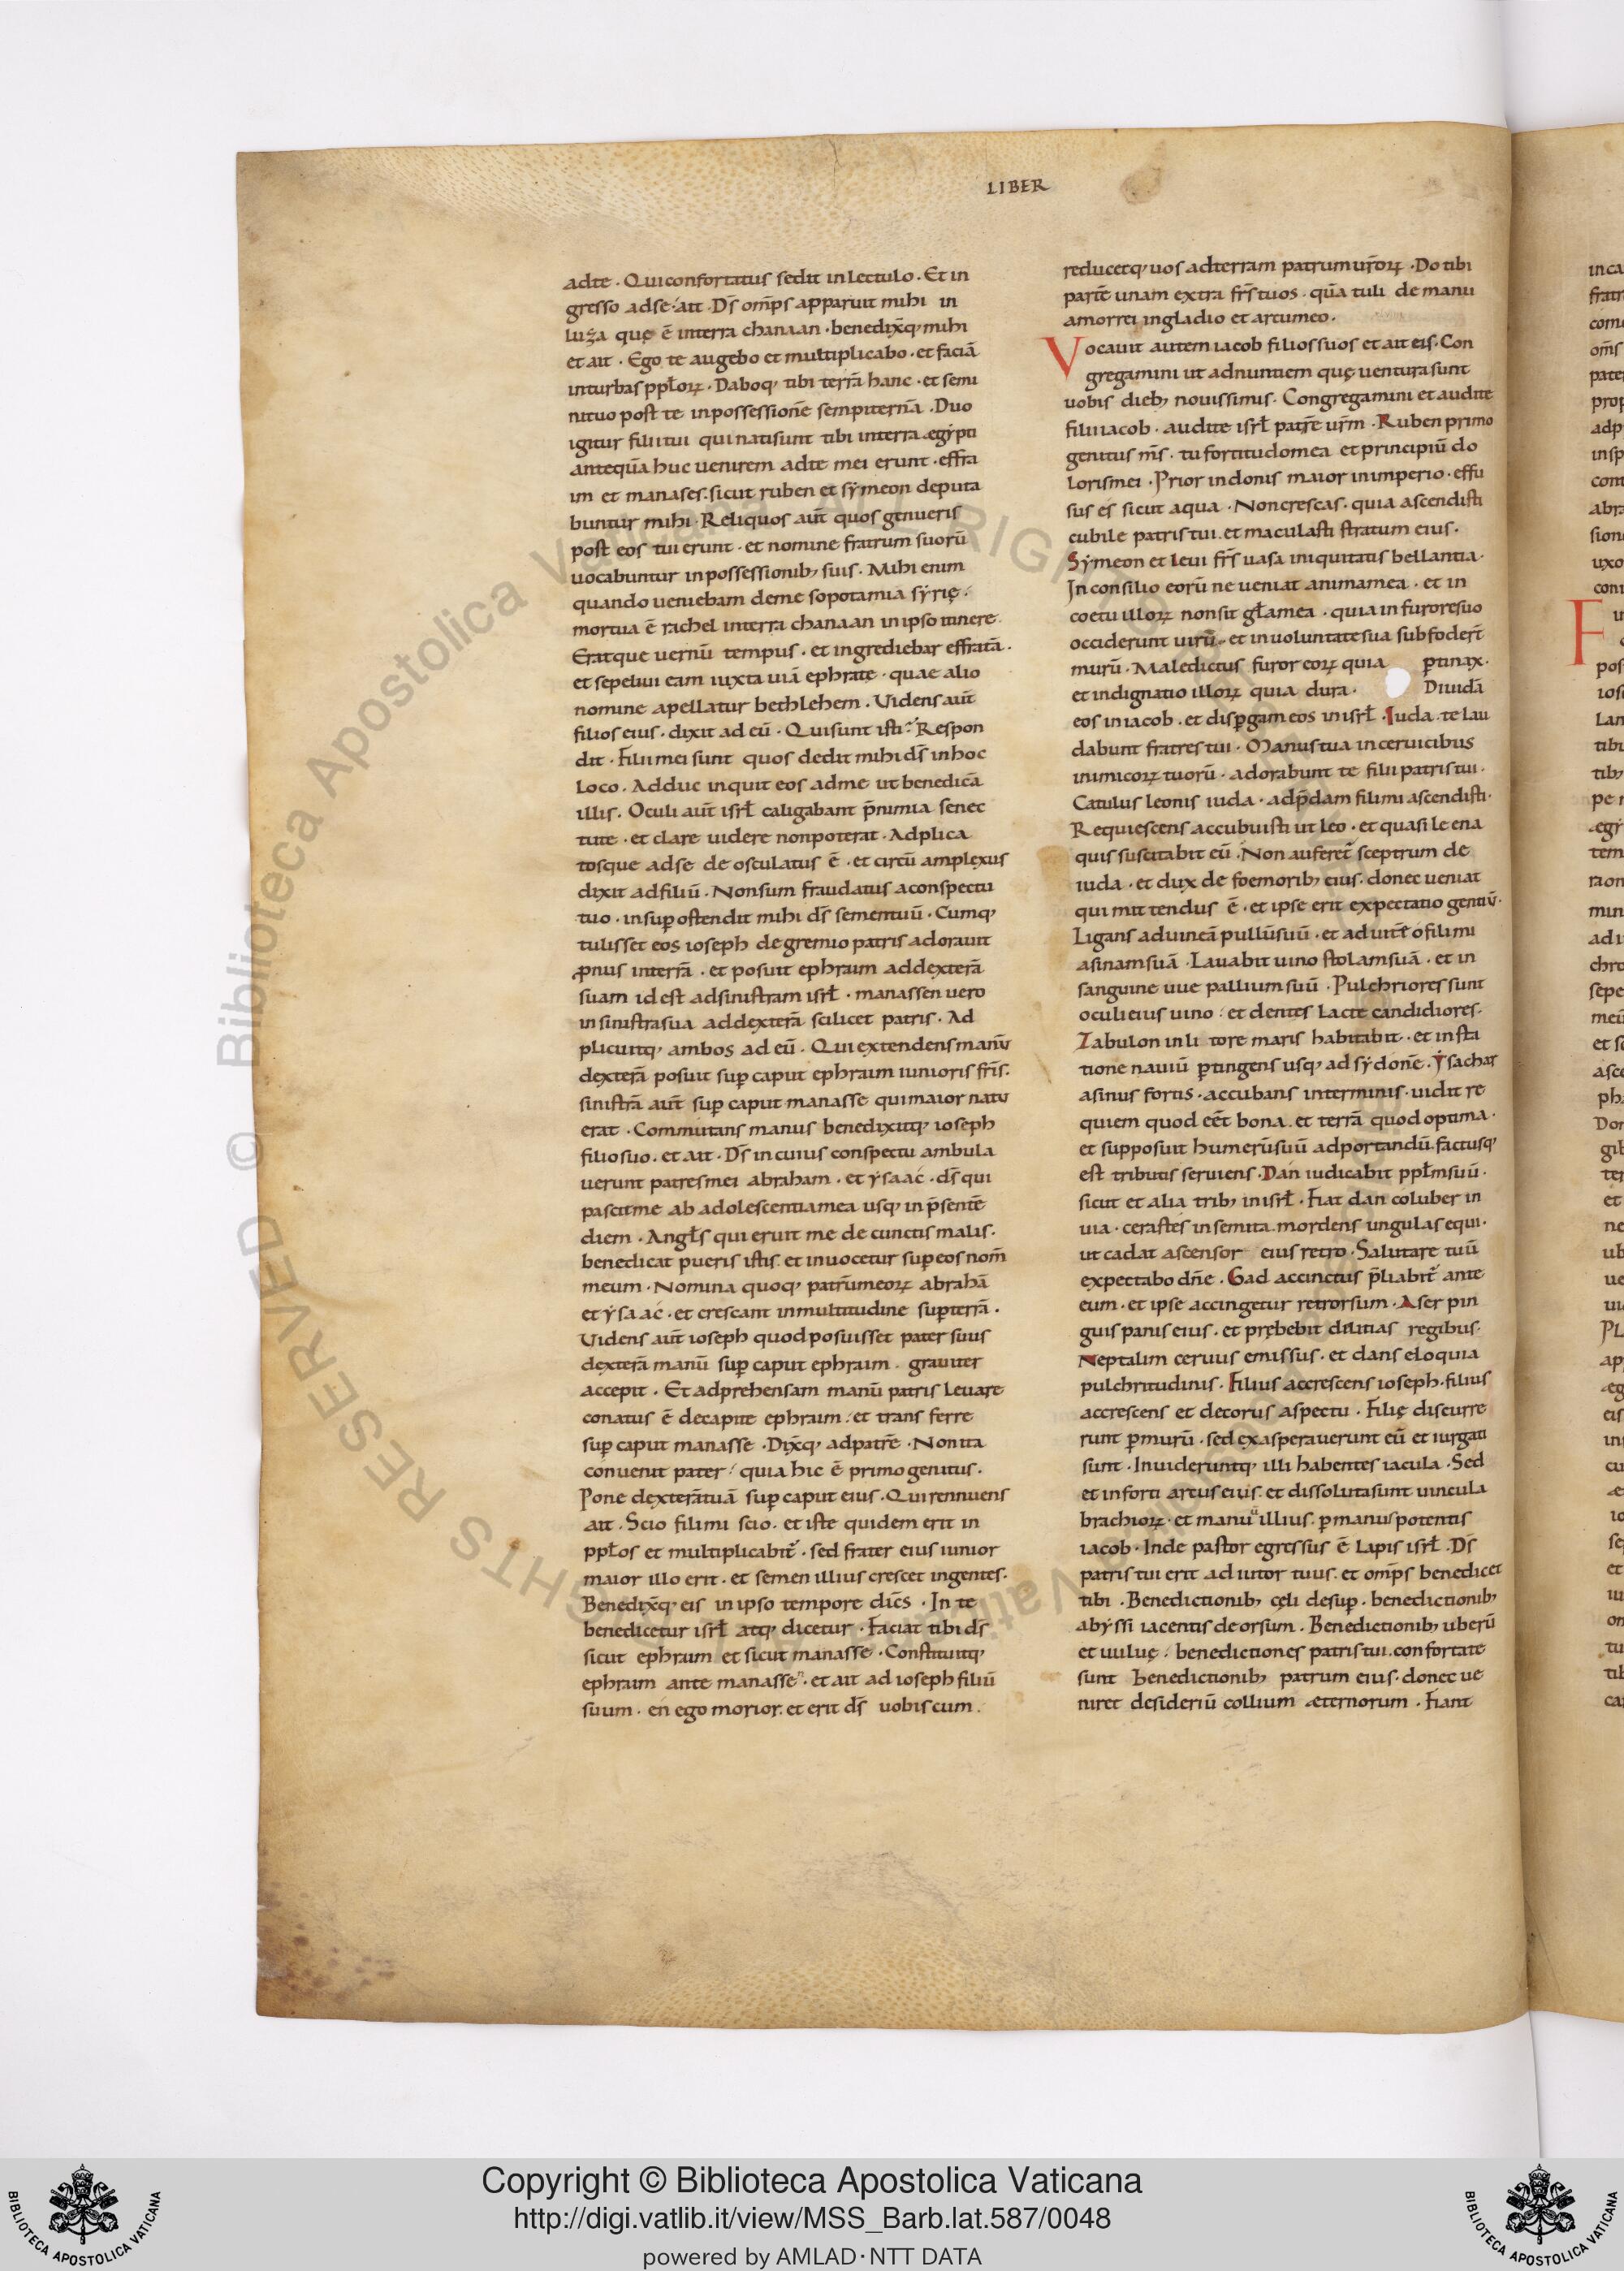 LIBER
adte · Qui confortatus sedit in lectulo · Et in
gresso adse · ait · Ds̄ om̄ps apparuit mihi in
luza quę ē interra chanaan · benedixq; mihi
et ait · Ego te augebo et multiplicabo · et faciā
inturbas ppl̄oꝝ · Daboq; tibi terrā hanc · et semi
nituo post te inpossessionē sempiternā · Duo
igitur filii tui qui natisunt tibi interra ęgẏpti
antequā huc uenirem adte mei erunt · effra
im et manases. sicut ruben et sẏmeon deputa
buntur mihi · Reliquos aut̄ quos genueris
post eos tui erunt · et nomine fratrum suorū
uocabuntur inpossessionib; suis · Mihi enim
quando ueniebam deme sopotamia sẏrię ·
mortua ē rachel interra chanaan in ipso itinere
Eratque uernū tempus · et ingrediebar effratā ·
et sepeliui eam iuxta uiā ephrate · quae alio
nomine apellatur bethlehem · Uidens aut̄
filios eius · dixit ad eū · Quisunt isti? Respon
dit · Filii mei sunt quos dedit mihi ds̄ inhoc
loco · Adduc inquit eos adme ut benedicā
illis · Oculi aut̄ isrl̄ caligabant p̄nimia senec
tute · et clare uidere nonpoterat · Adplica
tosque adse de osculatus ē · et circū amplexus
dixit adfiliū · Nonsum fraudatus aconspectu
tuo · insuꝑ ostendit mihi ds̄ sementuū · Cumq;
tulisset eos ioseph degremio patris adorauit
ꝓnus interrā · et posuit ephraim addexterā
suam id est adsinistram isrl̄ · manassen uero
in sinistrasua addexterā scilicet patris · Ad
plicuitq; ambos ad eū · Qui extendens manū
dexterā posuit suꝑ caput ephraim iunioris fr̄is ·
sinistrā aut̄ suꝑ caput manasse quimaior natu
erat · Commutans manus benedixitq; ioseph
filiosuo · et ait · Ds̄ in cuius conspectu ambula
uerunt patresmei abraham · et ẏsaac · ds̄ qui
pascitme ab adolescentiamea usq; in p̄sentē
diem · Angl̄s qui eruit me de cunctis malis ·
benedicat pueris istis · et inuocetur suꝑeos nom̄
meum · Nomina quoq; patrūmeoꝝ abrahā
et ẏsaac · et crescant inmultitudine suꝑterrā ·
Uidens aut̄ ioseph quod posuisset pater suus
dexterā manū suꝑ caput ephraim · grauiter
accepit · Et adprehensam manū patris leuare
conatus ē decapite ephraim · et trans ferre
suꝑ caput manasse · Dixq; adpatrē · Non ita
conuenit pater · quia hic ē primo genitus ·
Pone dexterātuā suꝑ caput eius · Qui rennuens
ait · Scio filimi scio · et iste quidem erit in
ppl̄os et multiplicabit᷑ · sed frater eius iunior
maior illo erit · et semen illius crescet ingentes ·
Benedixq; eis in ipso tempore dic̄s · In te
benedicetur isrl̄ atq; dicetur · Faciat tibi ds̄
sicut ephraim et sicut manasse · Constituitq;
ephraim ante manassen · et ait ad ioseph filiū
suum · en ego morior · et erit ds̄ uobiscum ·
reducetq; uos adterram patrum ur̄oꝝ · Do tibi
partē unam extra fr̄s tuos · quā tuli de manu
amorrei ingladio et arcumeo ·
Vocauit autem iacob filios suos et ait eis · Con
gregamini ut adnuntiem quę uentura sunt
uobis dieb; nouissimis · Congregamini et audite
filii iacob · audite isrl̄ patrē ur̄m · Ruben primo
genitus m̄s · tu fortitudomea et principiū do
lorismei · Prior indonis maior inimperio · effu
sus es sicut aqua · Noncrescas · quia ascendisti
cubile patris tui · et maculasti stratum eius ·
Sẏmeon et leui fr̄s uasa iniquitatis bellantia ·
In consilio eorū ne ueniat animamea · et in
coetu illoꝝ nonsit gl̄amea · quia in furoresuo
occiderunt uirū · et in uoluntatesua subfoder̄t
murū · Maledictus furor eoꝝ quia ꝑtinax ·
et indignatio illoꝝ quia dura · Diuidā
eos in iacob · et disꝑgam eos in isrl̄ · Iuda · te lau
dabunt fratres tui · Manus tua in ceruicibus
inimicoꝝ tuorū · adorabunt te filii patris tui ·
Catulus leonis iuda · adp̄dam filimi ascendisti ·
Requiescens accubuisti ut leo · et quasi leena
quis suscitabit eū · Non auferet᷑ sceptrum de
iuda · et dux de foemorib; eius · donec ueniat
qui mit tendus ē · et ipse erit expectatio gentiū ·
Ligans aduineā pullūsuū · et ad uitē o filimi
asinamsuā · Lauabit uino stolamsuā · et in
sanguine uue palliumsuū · Pulchriores sunt
oculieius uino · et dentes lacte candidiores ·
Zabulon inli tore maris habitabit · et in sta
tione nauiū ꝑtingens usq; ad sẏdonē · Ẏsachar
asinus fortis · accubans interminis · uidit re
quiem quod eēt bona · et terrā quod optima ·
et supposuit humerūsuū adportandū · factusq;
est tributis seruiens · Dan iudicabit ppl̄msuū ·
sicut et alia trib; in isrl̄ · Fiat dan coluber in
uia · cerastes insemita · mordens ungulas equi ·
ut cadat ascensor eius retro · Salutare tuū
expectabo dn̄e · Gad accinctus p̄liabit᷑ ante
eum · et ipse accingetur retrorsum · Aser pin
guis panis eius · et prębebit dilitias regibus ·
Neptalim ceruus emissus · et dans eloquia
pulchritudinis · Filius accrescens ioseph · filius
accrescens et decorus aspectu · Filię discurre
runt ꝑmurū · sed exasperauerunt eū et iurgati
sunt · Inuideruntq; illi habentes iacula · Sed
et inforti arcus eius · et dissolutasunt uincula
brachioꝝ · et manuū illius · ꝑmanus potentis
iacob · Inde pastor egressus ē lapis isrl̄ · Ds̄
patris tui erit adiutor tuus · et om̄ps benedicet
tibi · Benedictionib; cęli desuꝑ · benedictionib;
abẏssi iacentis deorsum · Benedictionib; uberū
et uuluę · benedictiones patris tui · confortate
sunt benedictionib; patrum eius · donec ue
niret desideriū collium æternorum · Fiant
Copyright © Biblioteca Apostolica Vaticana
http://digi.vatlib.it/view/MSS_Barb.lat.587/0048
powered by AMLAD·NTT DATA
BIBLIOTECA APOSTOLICA VATICANA
BIBLIOTECA APOSTOLICA VATICANA